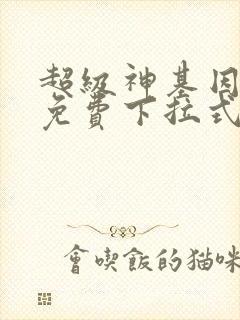 超級神基因
免費下拉式
會喫飯的猫咪